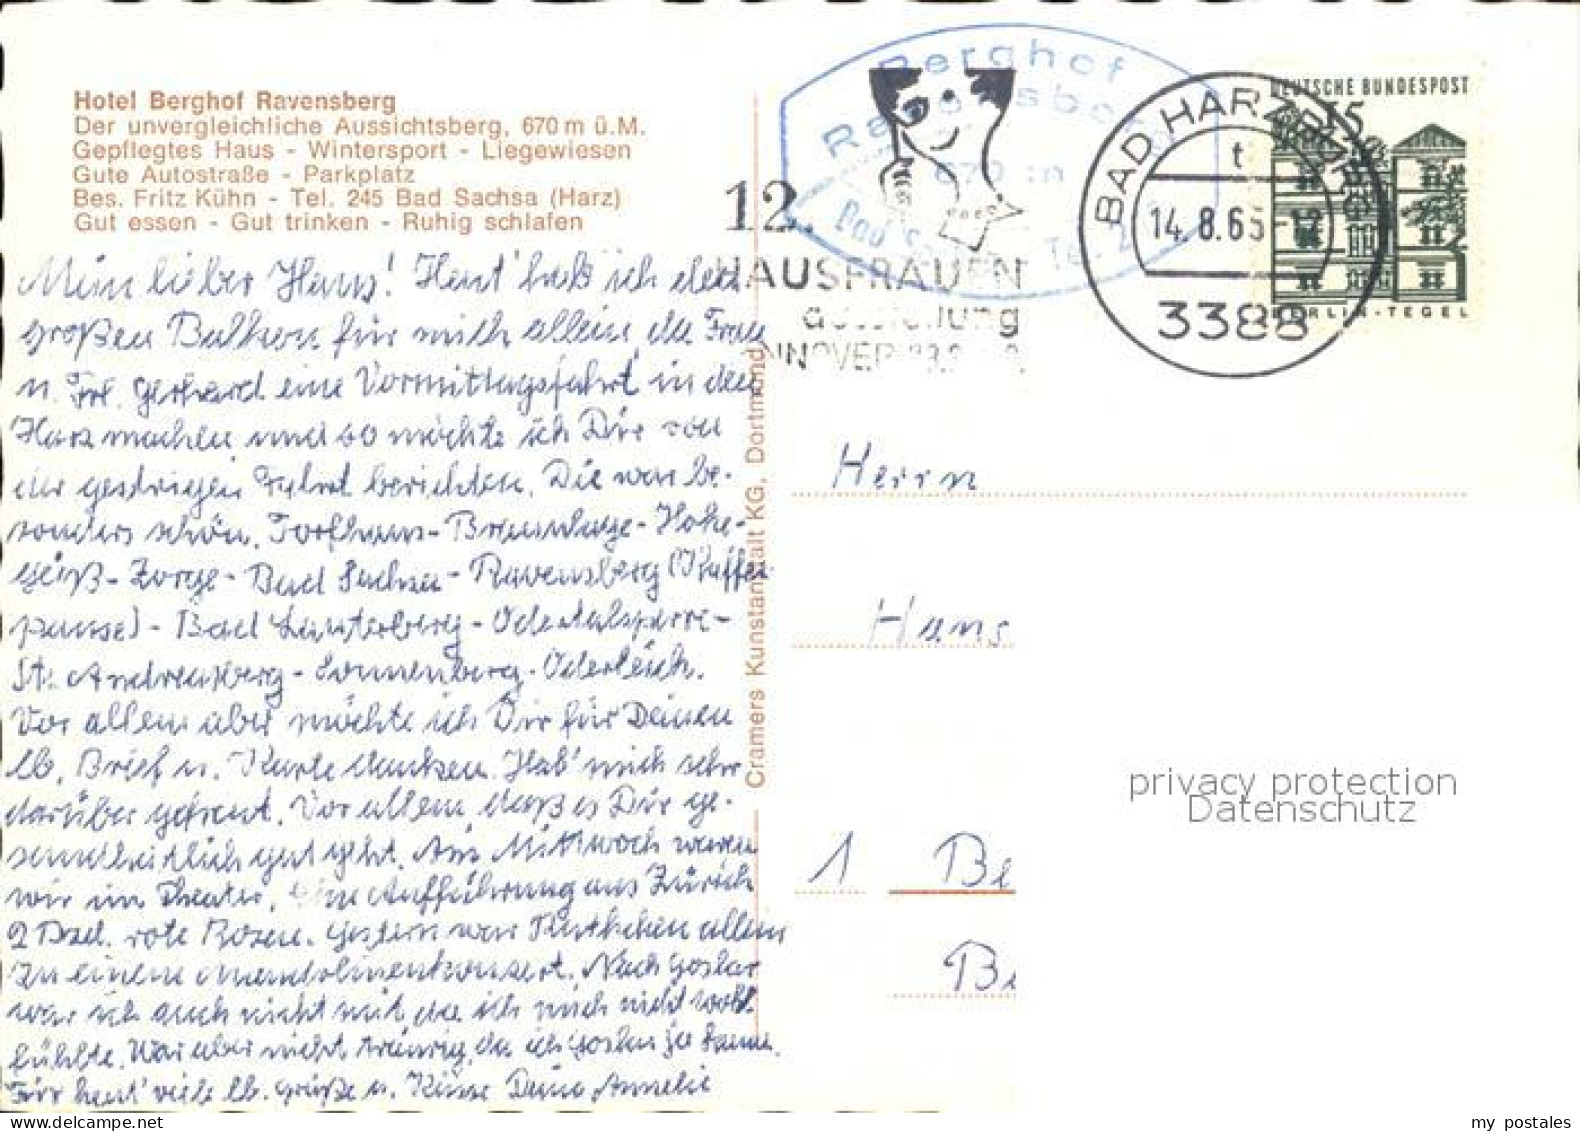 Hotel Berghof Ravensberg
Der unvergleichliche Aussichtsberg, 670 m ü.M.
Gepflegtes Haus - Wintersport - Liegewiesen
Gute Autostraße - Parkplatz
Bes. Fritz Kühn - Tel. 245 Bad Sachsa (Harz)
Gut essen - Gut trinken - Ruhig schlafen
Mein lieber Hans! Heut' hab ich den
großen Balkon für mich allein, da Frau
u. Frl. Gerhard eine Vormittagsfahrt in den
Harz machen und so möchte ich Dir von
der gestrigen Fahrt berichten. Die war be-
sonders schön. Torfhaus - Braunlage - Hohe-
geiß - Zorge - Bad Sachsa - Ravensberg (Kaffee-
pause) - Bad Lauterberg - Odertalsperre -
St. Andreasberg - Sonnenberg - Oderteich.
Vor allem aber möchte ich Dir für Deinen
lb. Brief u. Karte danken. Hab' mich sehr
darüber gefreut. Vor allem, daß es Dir ge-
sundheitlich gut geht. Am Mittwoch waren
wir im Theater. Eine Aufführung aus Zürich
2 Dzd. rote Rosen. Gestern war Ruthchen allein
zu einem Mandolinenkonzert. Nach Goslar
war ich auch nicht mit da ich mich nicht wohl
fühlte. War aber nicht traurig, da ich Goslar ja kenne.
Für heut' viele lb. Grüße u. Küsse Deine Annelie
Cramers Kunstanstalt KG, Dortmund
Berghof
Ravensberg
670 m
Bad Sachsa Tel. 2
12.
HAUSFRAUEN
ausstellung
BAD HARZBURG
t
14.8.65-12
3388
DEUTSCHE BUNDESPOST
15
BERLIN-TEGEL
Herrn
Hans
1 Be
Be
privacy protection
Datenschutz
my postales